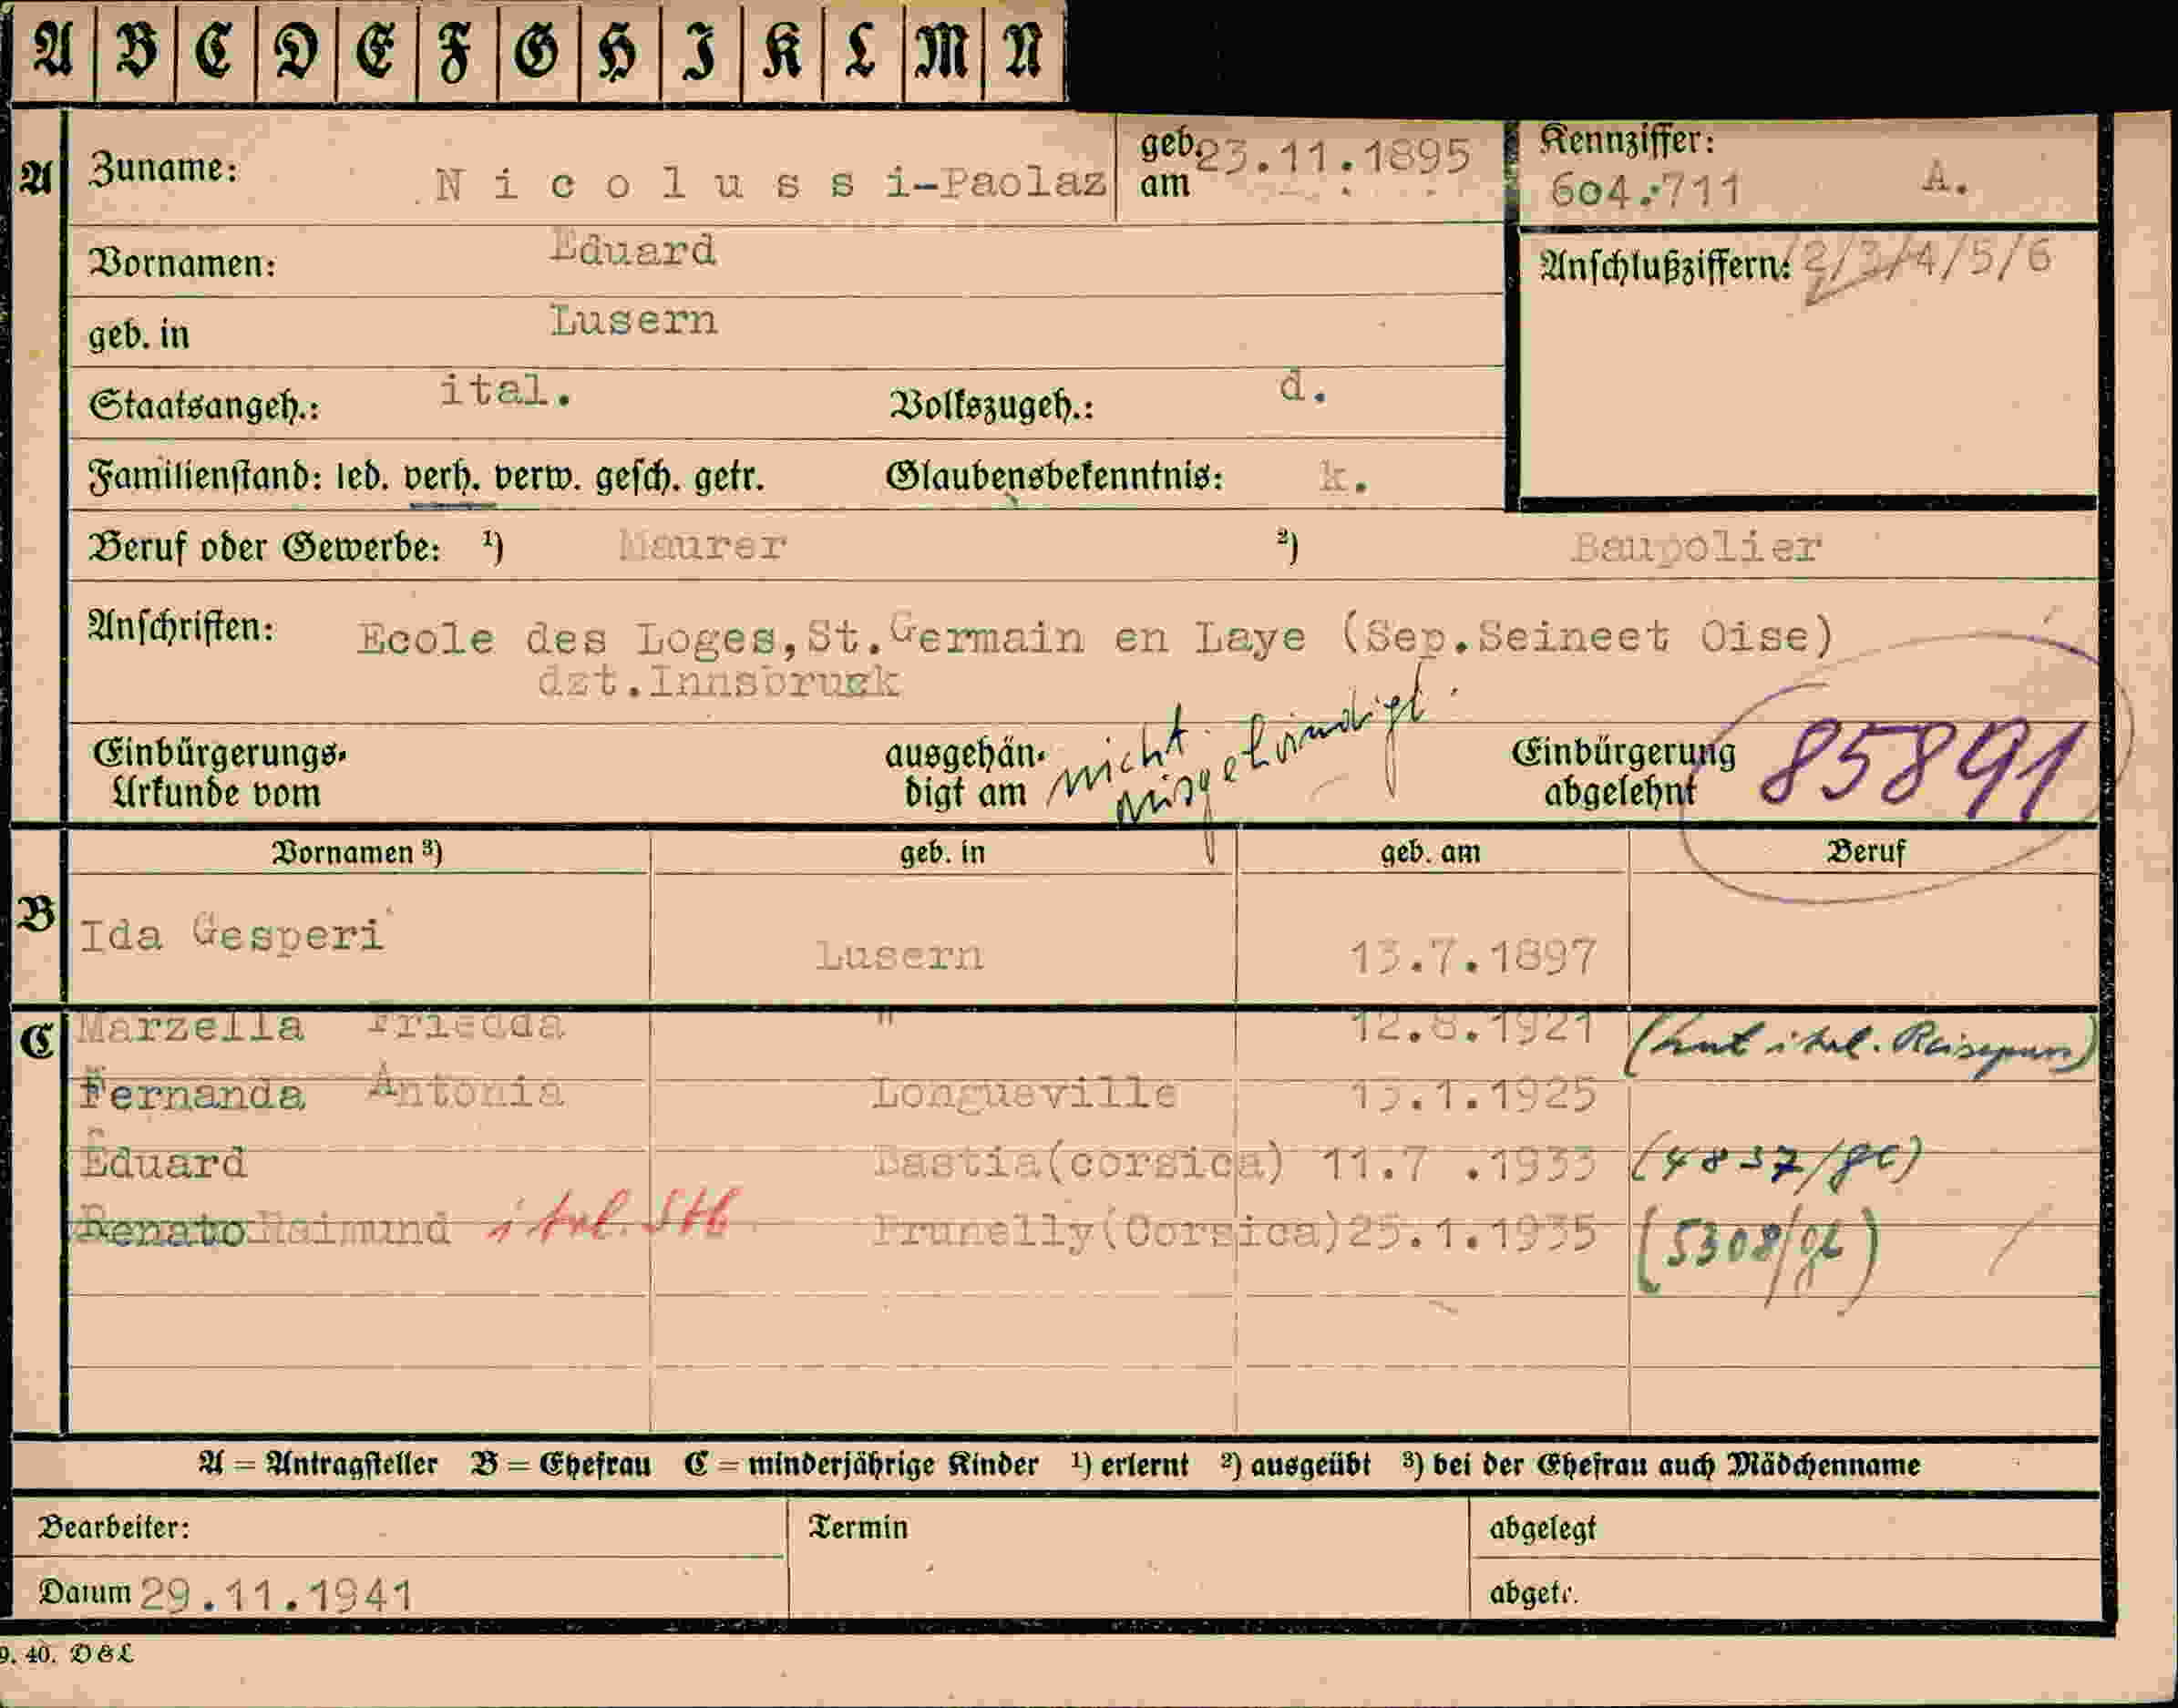 A B C D E F G H I K L M N
A Zuname: Nicolussi-Paolaz geb. am 23.11.1895 Kennziffer: 604.711 A.
Vornamen: Eduard Anschlußziffern: /2/3/4/5/6
geb. in Lusern
Staatsangeh.: ital. Volkszugeh.: d.
Familienstand: led. verh. verw. gesch. getr. Glaubensbekenntnis: k.
Beruf oder Gewerbe: ¹) Maurer ²) Baupolier
Anschriften: Ecole des Loges,St.Germain en Laye (Sep.Seineet Oise)
dzt.Innsbruck
Einbürgerungs- ausgehän- nicht Einbürgerung 85891
Urkunde vom digt am ausgehändigt. abgelehnt
Vornamen ³) geb. in geb. am Beruf
B Ida Gesperi Lusern 13.7.1897
C Marzella Friedda " 12.8.1921 (laut ital. Reisepass)
Fernanda Antonia Longueville 13.1.1925
Eduard Bastia(corsica) 11.7 .1933 (4837/
Renato Raimund ital. Stb Prunelly(Corsica)25.1.1935 (5308/
A = Antragsteller B = Ehefrau C = minderjährige Kinder ¹) erlernt ²) ausgeübt ³) bei der Ehefrau auch Mädchenname
Bearbeiter: Termin abgelegt
Datum 29.11.1941 abgetr.
9. 40. D & L